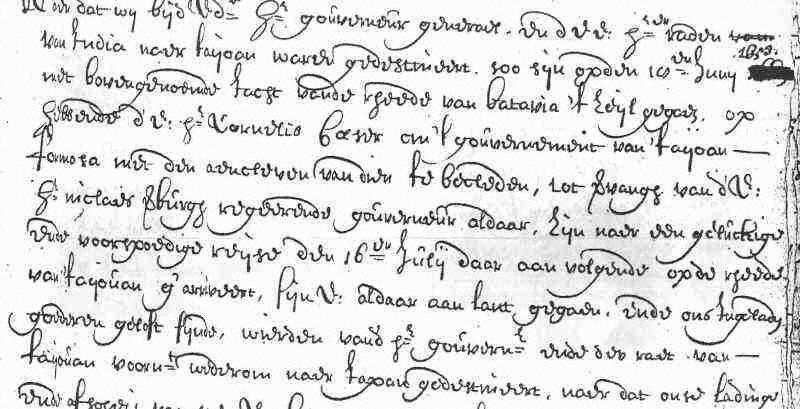 Naer dat wij bij d'Ed.le H.r gouverneur generael, ende d'E.E. H.ren raden
van India naer taijoan waren gedestineert, soo sijn op den 18.en Junij 1653.
met bovengenoemde jacht van de rheede van batavia 't zeijl gegaen, op
hebbende d'E: H.r Cornelis Caesar om 't gouvernement van taijoan
formosa met den aencleven van dien te becleden, tot vervangh van d'E:
H.r niclaes verburgh regeerende gouverneur aldaar, zijn naer een geluckige,
ende voorspoedige reijse den 16.en Julij daar aan volgende op de rheede
van taijouan g'arriveert, sijn E: aldaar aan lant gegaen, ende ons ingeladen
goederen gelost sijnde, wierden van d' H.r gouvern.r ende den raet van
taijouan voorn.t wederom naer Japan gedestineert, naer dat onse ladinge